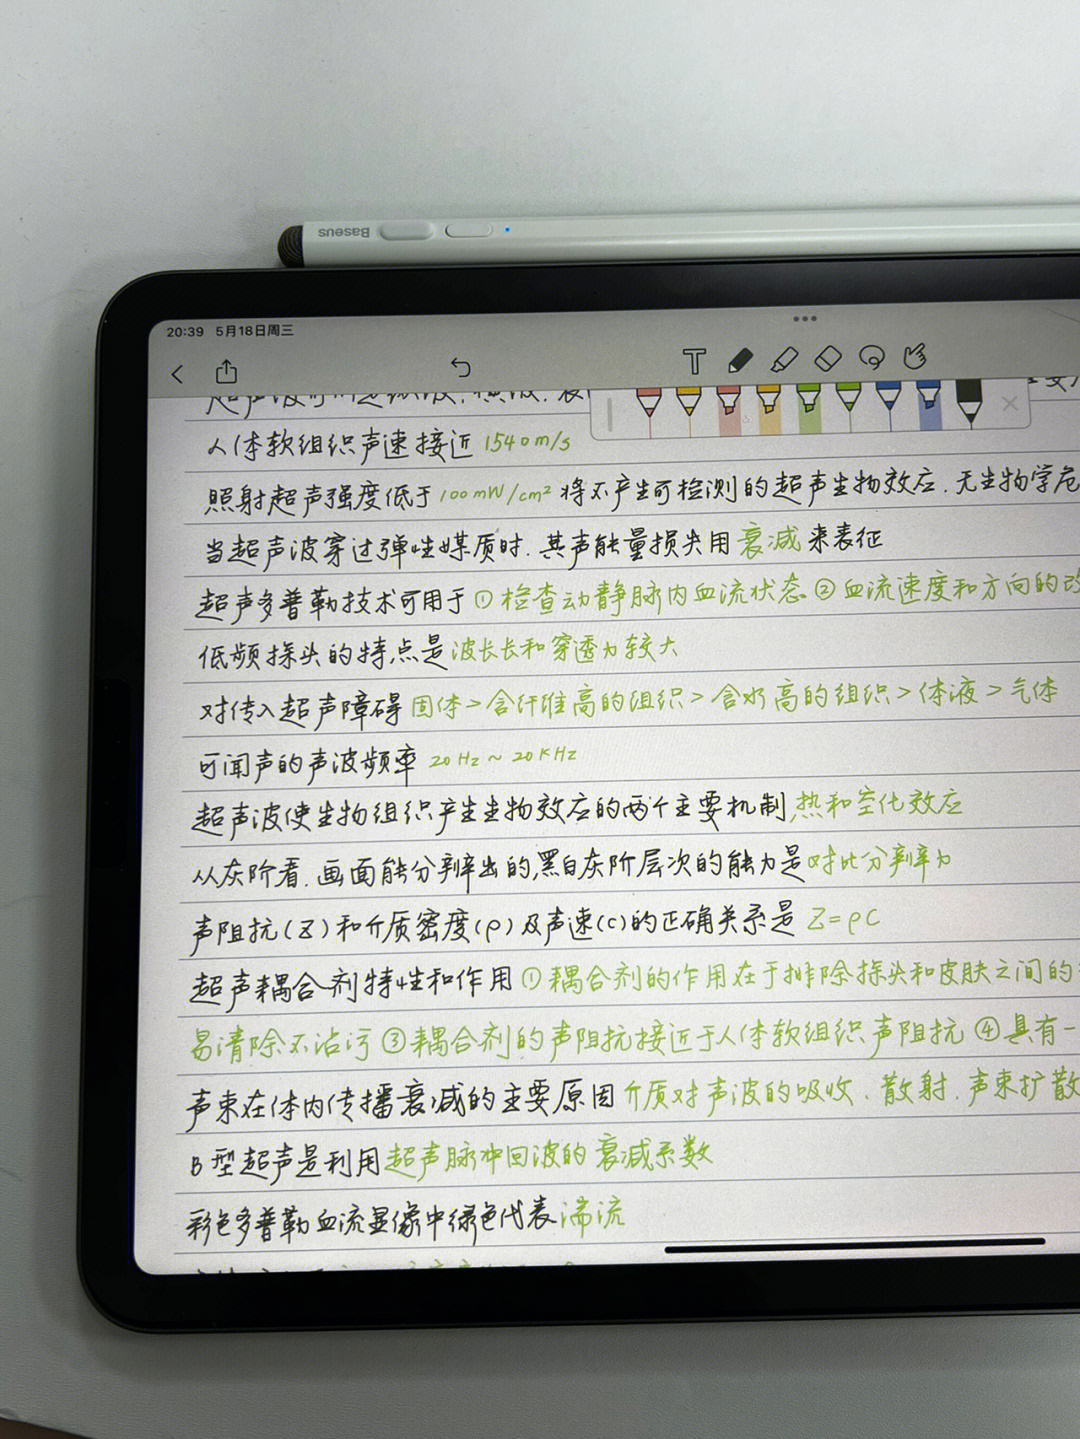 Baseus
20:39 5月18日周三
T
人体软组织声速接近 1540m/s
照射超声强度低于100mW/cm² 将不产生可检测的超声生物效应.无生物学危
当超声波穿过弹性媒质时.其声能量损失用衰减来表征
超声多普勒技术可用于①检查动静脉内血流状态②血流速度和方向的改
低频探头的特点是波长长和穿透力较大
对传入超声障碍固体>含纤维高的组织>含水高的组织>体液>气体
可闻声的声波频率 20Hz~20KHz
超声波使生物组织产生生物效应的两个主要机制,热和空化效应
从灰阶看.画面能分辨出的,黑白灰阶层次的能力是对比分辨率力
声阻抗(Z)和介质密度(ρ)及声速(c)的正确关系是 Z=ρC
超声耦合剂特性和作用①耦合剂的作用在于排除探头和皮肤之间的
易清除不沾污③耦合剂的声阻抗接近于人体软组织声阻抗④具有一
声束在体内传播衰减的主要原因介质对声波的吸收、散射.声束扩散
B型超声是利用超声脉冲回波的衰减系数
彩色多普勒血流显像中绿色代表湍流